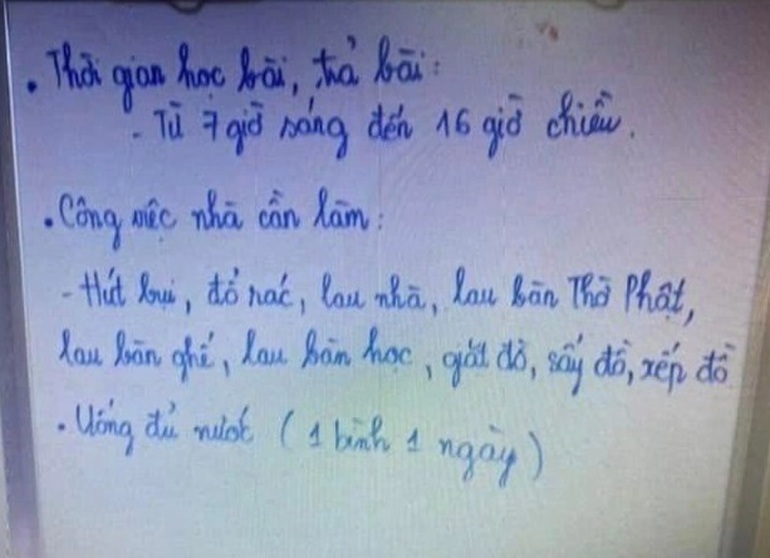 . Thời gian học bài, trả bài:
- Từ 7 giờ sáng đến 16 giờ chiều.
. Công việc nhà cần làm:
- Hút bụi, đổ rác, lau nhà, lau bàn Thờ Phật,
lau bàn ghế, lau bàn học, giặt đồ, sấy đồ, xếp đồ
. Uống đủ nước (1 bình 1 ngày)